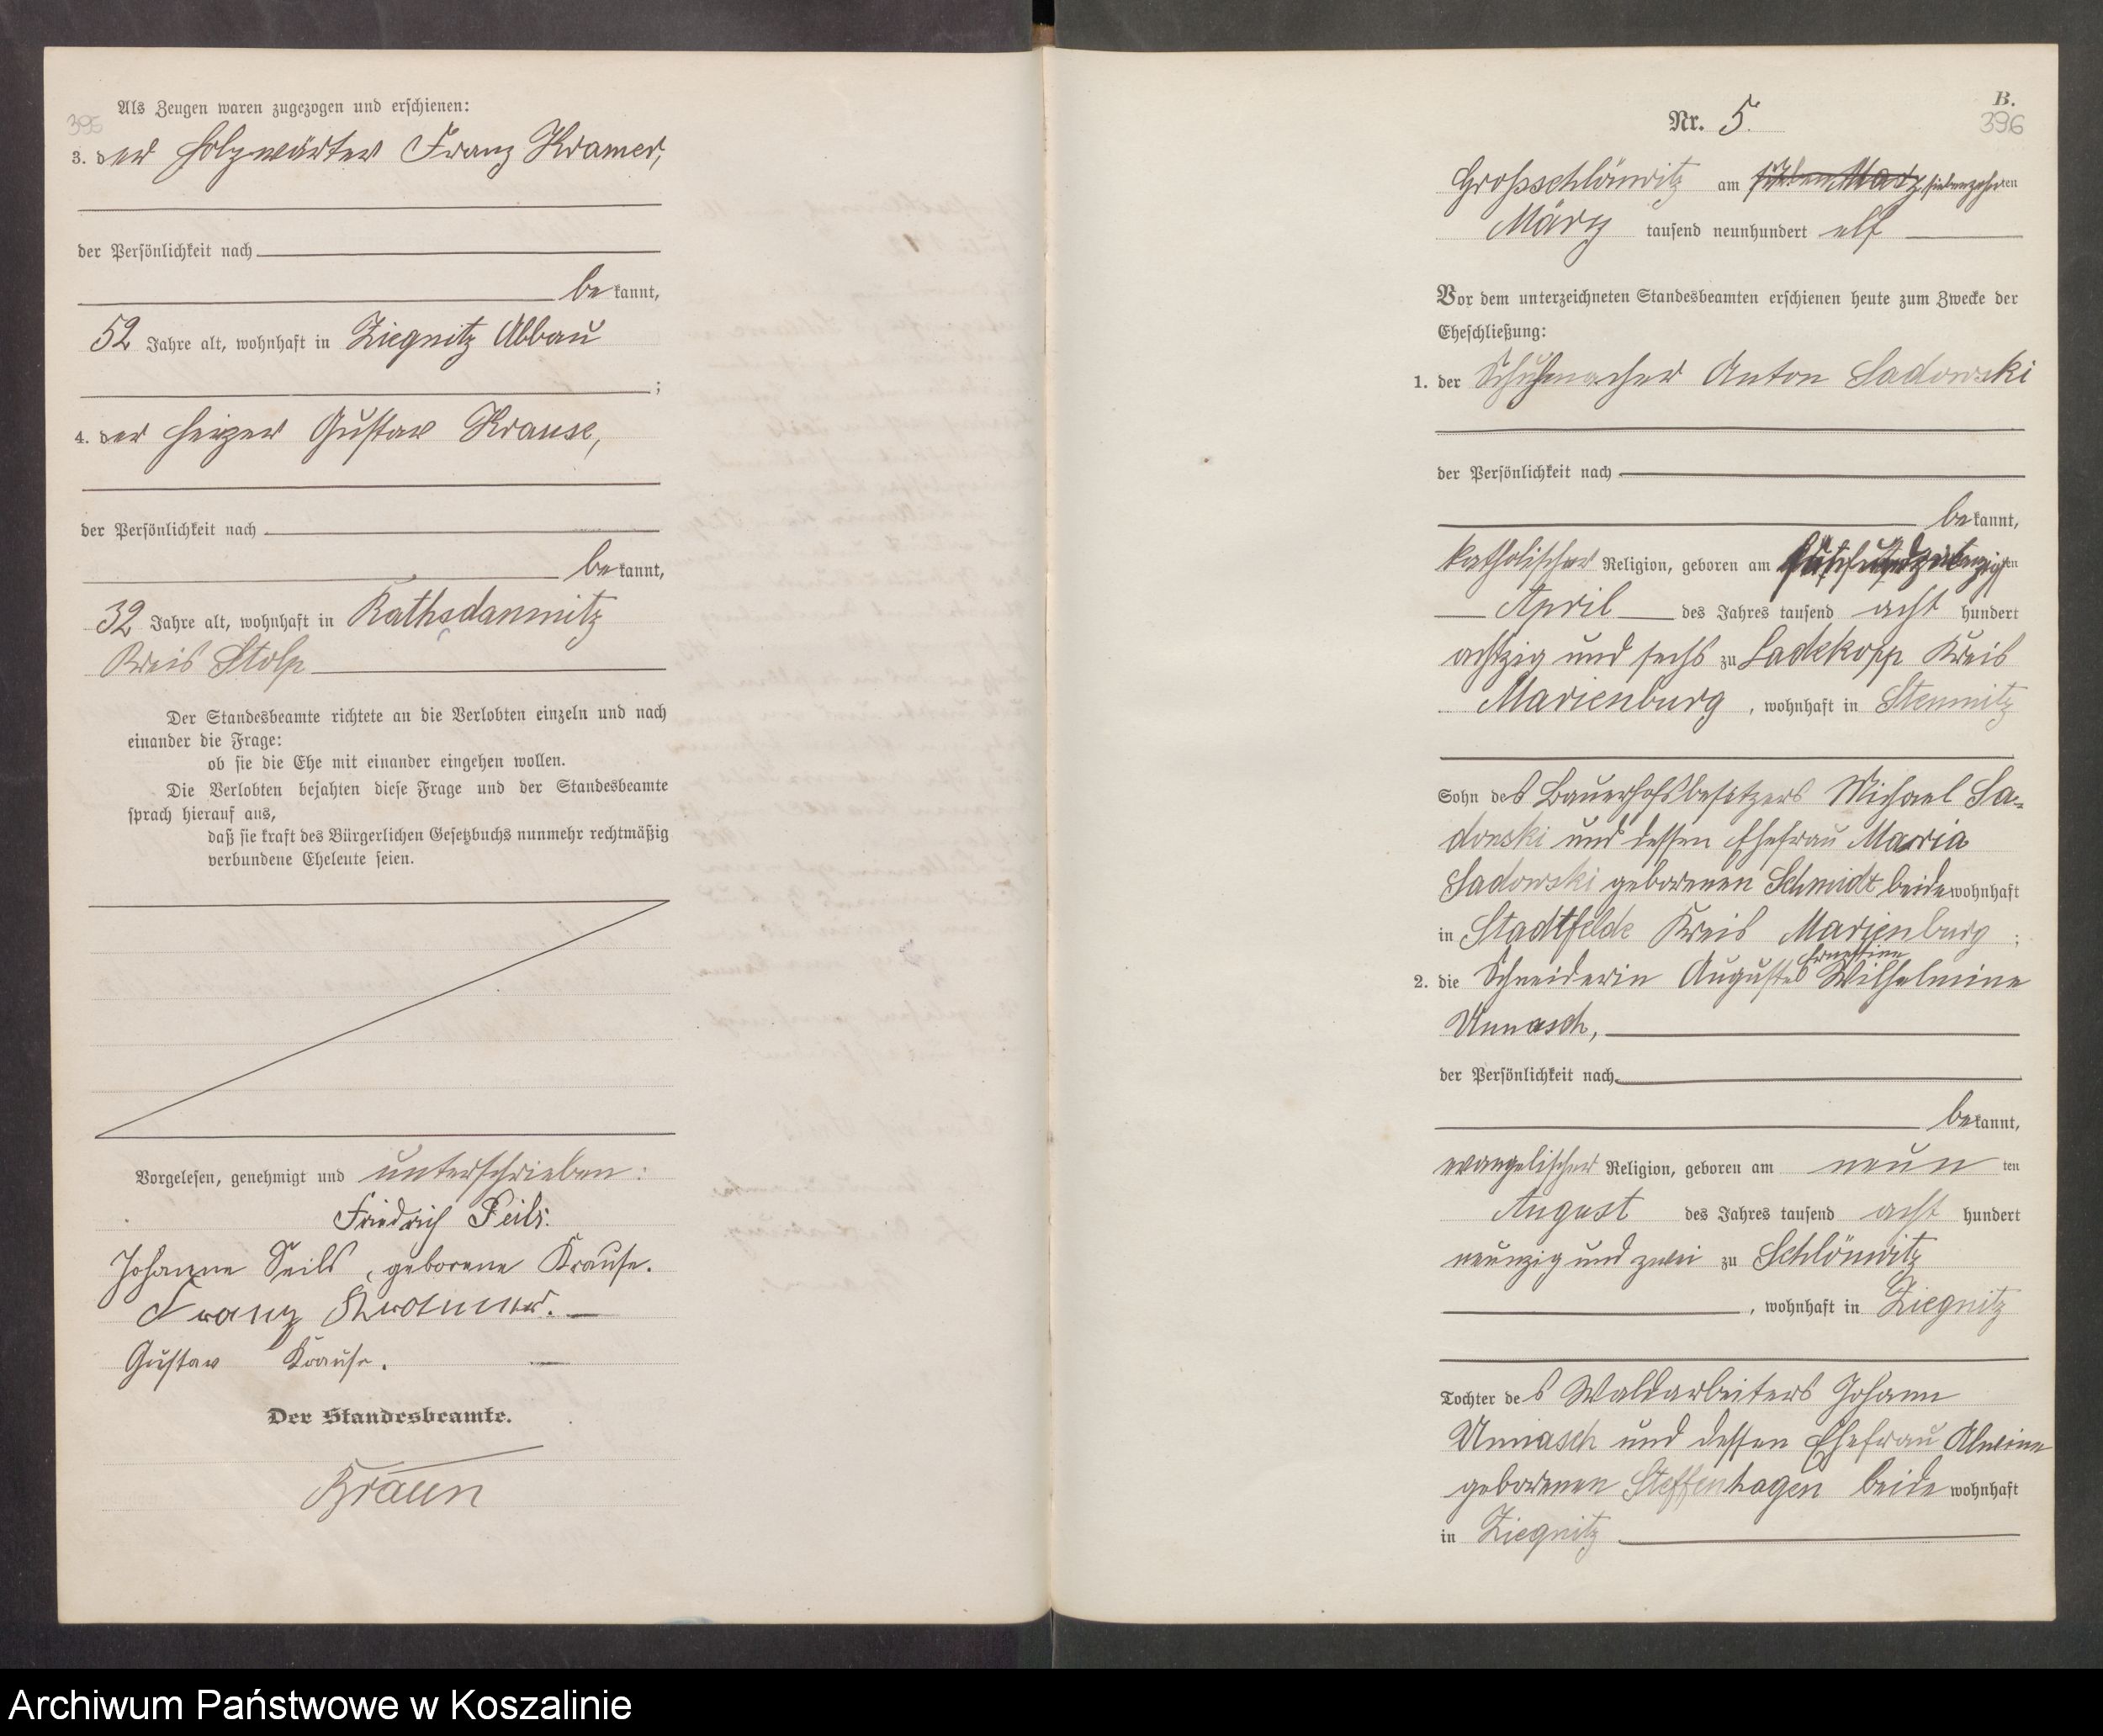 Als Zeugen waren zugezogen und erschienen:
395
3. der Holzwärter Franz Kramer,
der Persönlichkeit nach
bekannt,
52 Jahre alt, wohnhaft in Ziegnitz Abbau
;
4. der Heizer Gustav Krause,
der Persönlichkeit nach
bekannt,
32 Jahre alt, wohnhaft in Rathsdamnitz
Kreis Stolp
Der Standesbeamte richtete an die Verlobten einzeln und nach
einander die Frage:
ob sie die Ehe mit einander eingehen wollen.
Die Verlobten bejahten diese Frage und der Standesbeamte
sprach hierauf aus,
daß sie kraft des Bürgerlichen Gesetzbuchs nunmehr rechtmäßig
verbundene Eheleute seien.
Vorgelesen, genehmigt und unterschrieben:
Friedrich Seils.
Johanne Seils, geborene Krause.
Franz Kramer.
Gustav Krause.
Der Standesbeamte.
Braun
B.
396
Nr. 5.
Großschlönwitz am siebenzehnten
März tausend neunhundert elf
Vor dem unterzeichneten Standesbeamten erschienen heute zum Zwecke der
Eheschließung:
1. der Schuhmacher Anton Sadowski
der Persönlichkeit nach
bekannt,
katholischer Religion, geboren am ten
April des Jahres tausend acht hundert
achtzig und sechs zu Ladekopp Kreis
Marienburg, wohnhaft in Stemnitz
Sohn des Bauerhofsbesitzers Michael Sa-
dowski und dessen Ehefrau Maria
Sadowski geborenen Schmidt beide wohnhaft
in Stadtfelde Kreis Marienburg;
2. die Schneiderin Auguste Ernestine Wilhelmine
Unnasch,
der Persönlichkeit nach
bekannt,
evangelischer Religion, geboren am neun ten
August des Jahres tausend acht hundert
neunzig und zwei zu Schlönwitz
, wohnhaft in Ziegnitz
Tochter des Waldarbeiters Johann
Unnasch und dessen Ehefrau Alwine
geborenen Steffenhagen beide wohnhaft
in Ziegnitz
Archiwum Państwowe w Koszalinie